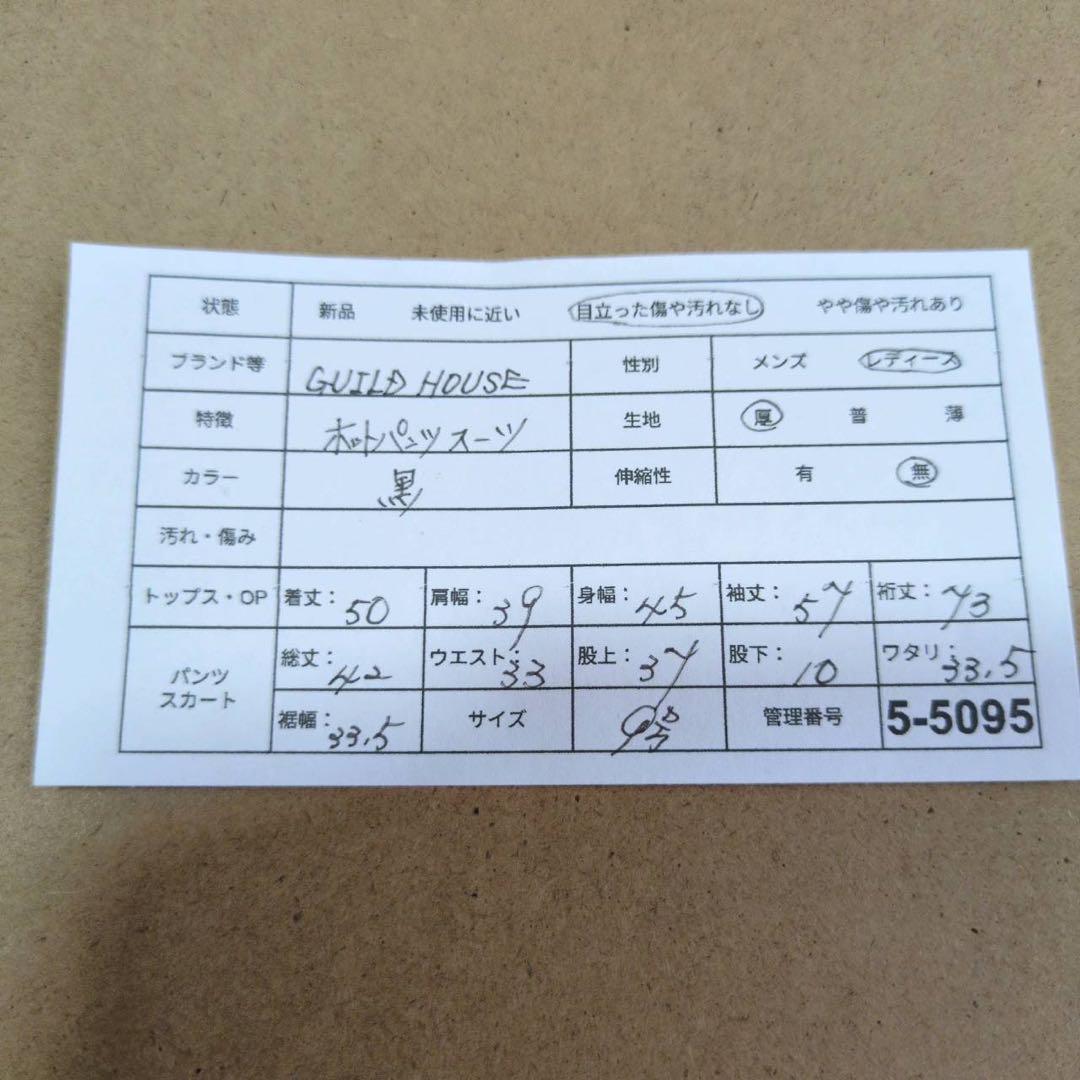 状態 新品 未使用に近い 目立った傷や汚れなし やや傷や汚れあり
ブランド等 GUILD HOUSE 性別 メンズ レディース
特徴 ホットパンツスーツ 生地 厚 普 薄
カラー 黒 伸縮性 有 無
汚れ・傷み
トップス・OP 着丈: 50 肩幅: 39 身幅: 45 袖丈: 57 裄丈: 73
パンツ スカート 総丈: 42 ウエスト: 33 股上: 37 股下: 10 ワタリ: 33.5
裾幅: 33.5 サイズ 管理番号 5-5095